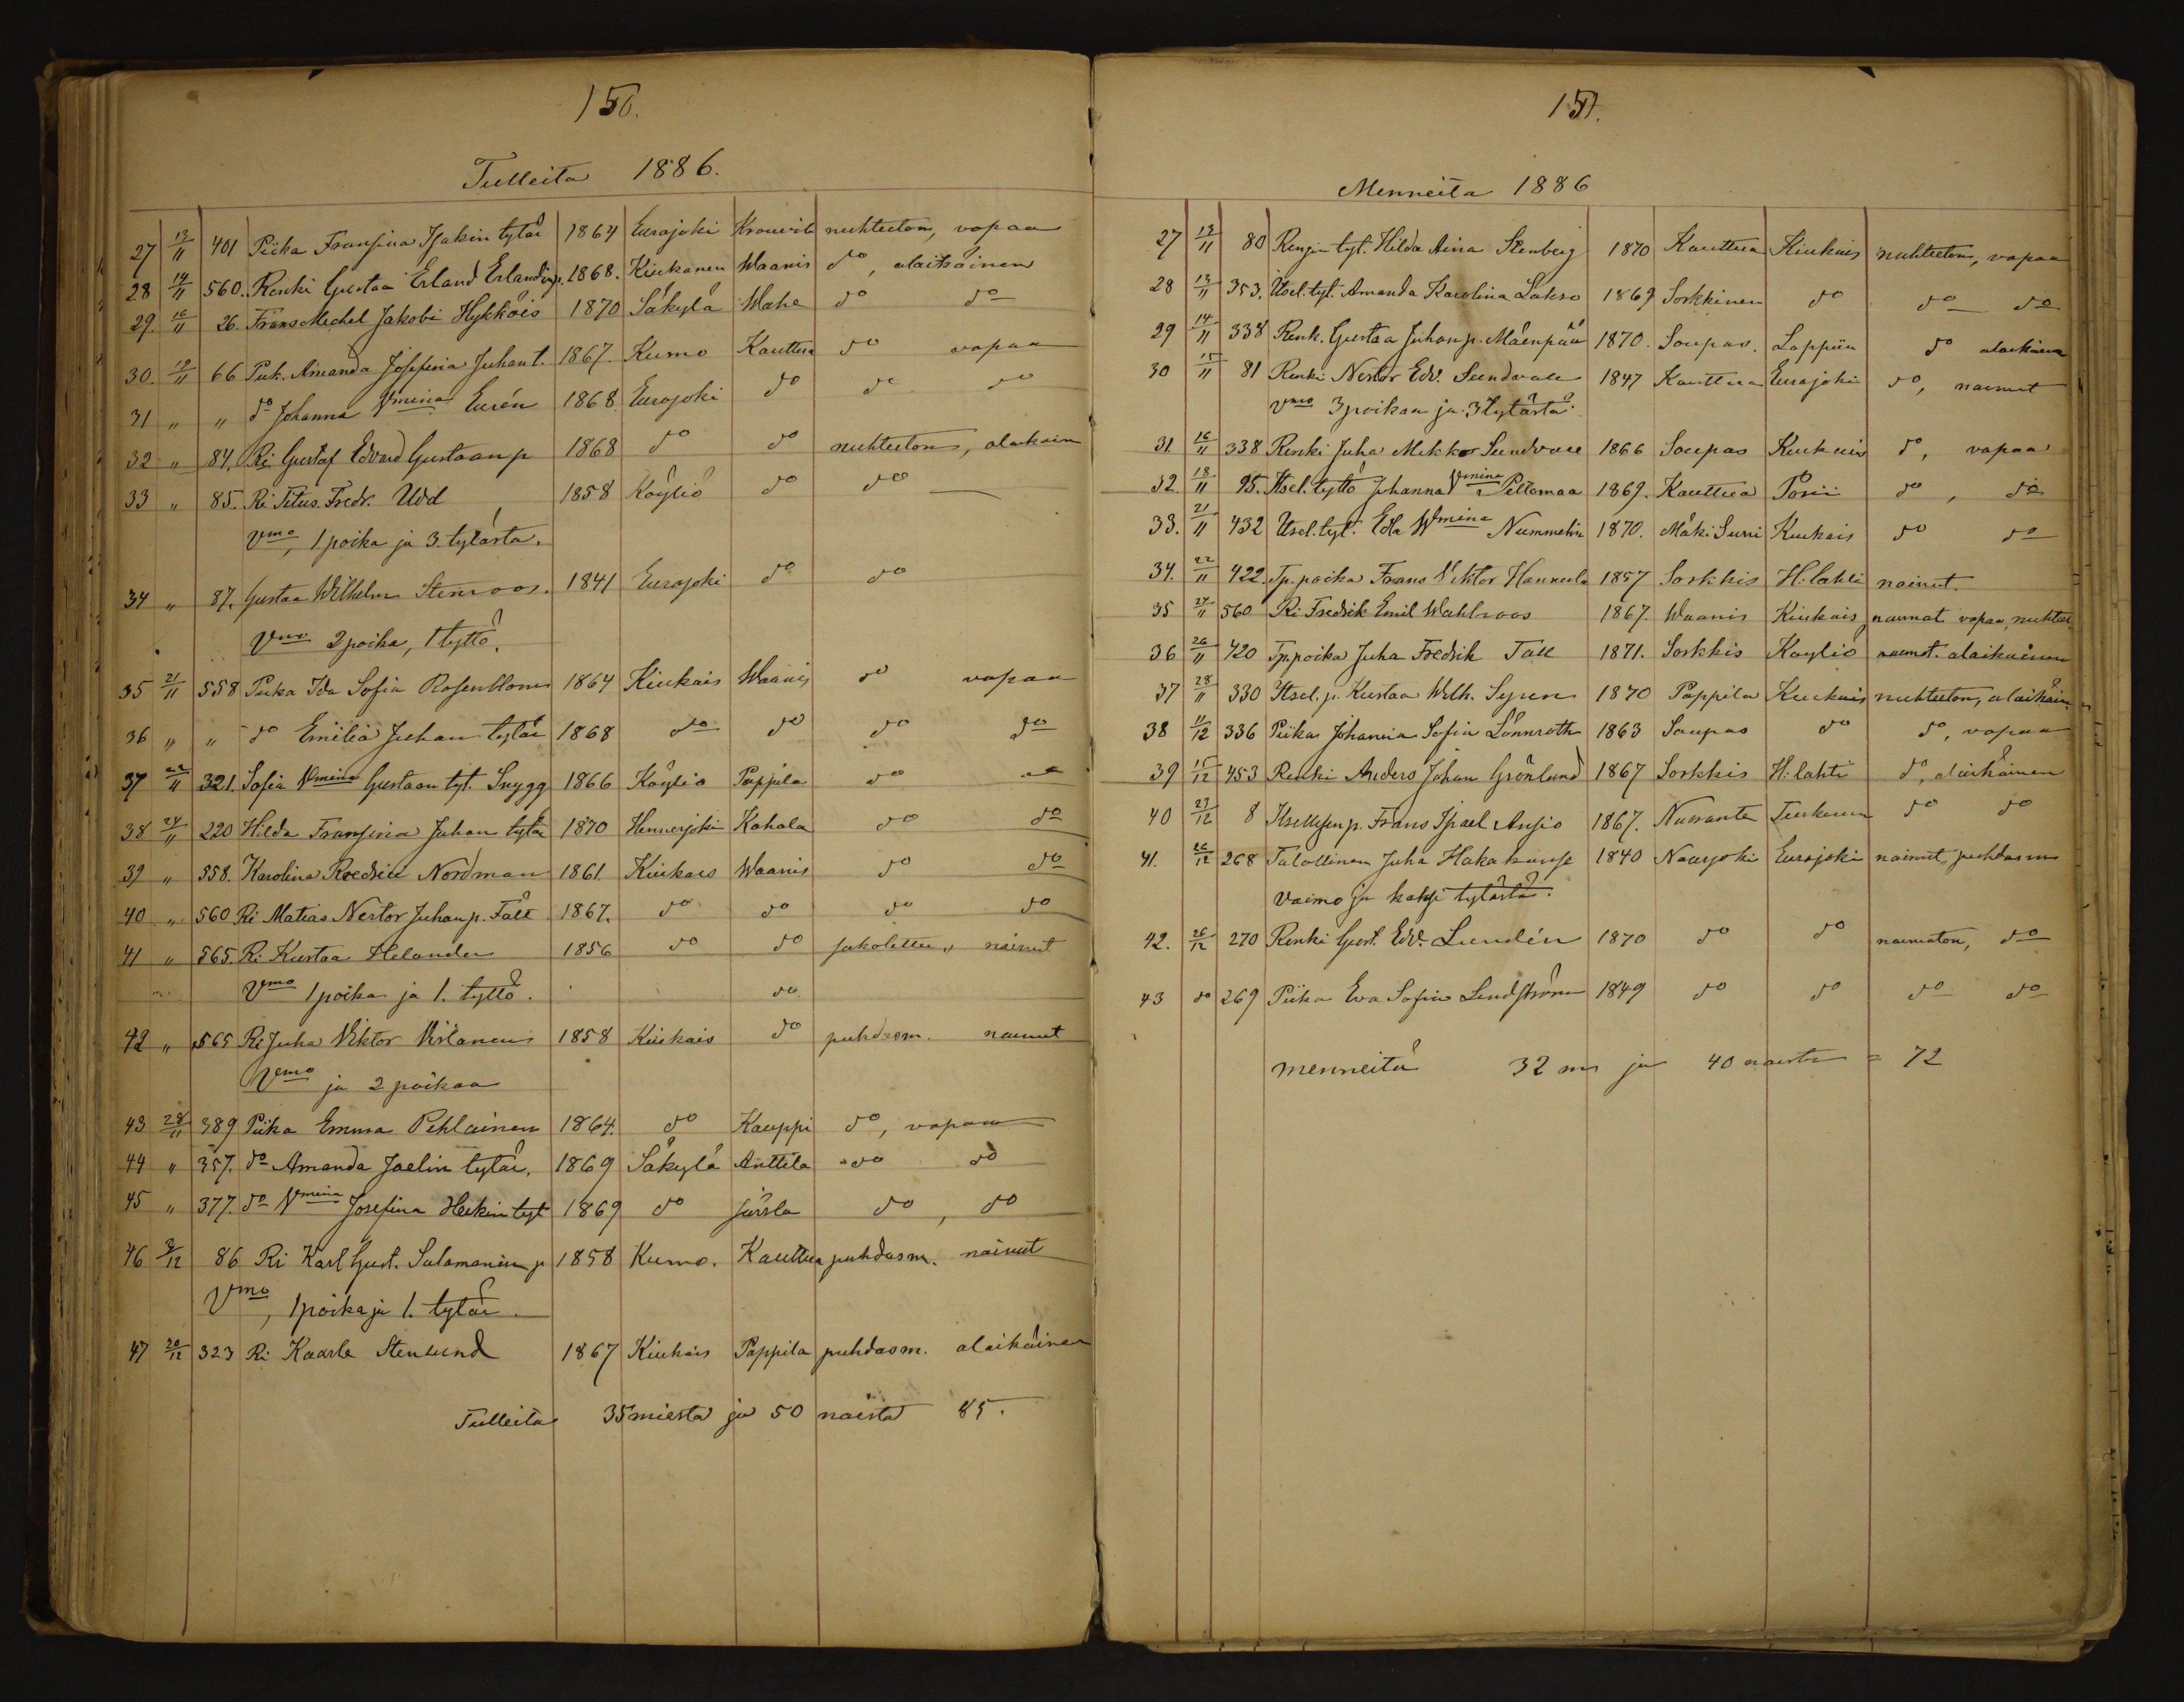 150.
Tulleita 1886.
27 13/11 401 Piika Fransina Isakin tytär 1864 Eurajoki nuhteeton, vapaa
28 14/11 560. Renki Gustaa Erland Erlandinp. 1868. Kiukanen Waanis do, alaikäinen
29. 16/11 26. Frans Michel Jakobi Hykköis 1870 Säkylä Wahe do do
30. 19/11 66 Piik. Amanda Josefina Juhan t. 1867. Kumo Kauttua do vapaa
31 " " do Johanna Vmina Eurén 1868 Eurajoki do do do
32 " 84. Ri Gustaf Edvard Gustaan p 1868 do do nuhteeton, alaikäin
33 " 85. Ri Titus. Fredr. Udd 1858 Köyliö do do
Vmo, 1 poika ja 3. tytärtä.
34 " 87. Gustaa Wilhelm Stenroos. 1841 Eurajoki do do
Vmo 2 poika, 1 tyttö.
35 21/11 558 Piika Ida Sofia Rosenblom 1864 Kiukais Waanis do vapaa
36 " " do Emilia Juhan tytär 1868 do do do do
37 22/11 321. Sofia Vmina Gustaan tyt. Snygg 1866 Köyliö Pappila do do
38 24/11 220 Hilda Fransina Juhan tytär 1870 Hennerjoki Kahala do do
39 " 558. Karolina Nordman 1861. Kiukais Waanis do do
40 " 560 Ri Matias Nestor Juhan p. Fält 1867. do do do do
41 " 565. Ri Kustaa Helander 1856 do do nainut
Vmo 1 poika ja 1. tyttö. do
42 " 565 Ri Juha Viktor Virtanen 1858 Kiukais do puhdasm. nainut
Vemo ja 2 poikaa
43 28/11 389 Piika Emma Pihlainen 1864. do Kauppi do, vapaa
44 " 357. do Amanda Joelin tytär, 1869 Säkylä Anttila do do
45 " 377. do Vmina Josefina Heikin tyt 1869 do do, do
46 9/12 86 Ri Karl Gust. Salomonin p 1858 Kumo. Kauttua puhdasm. nainut
Vmo, 1 poika ja 1. tytär.
47 20/12 323 Ri Kaarle Stenlund 1867 Kiukais Pappila puhdasm. alaikäinen
Tulleita 35 miestä ja 50 naista 85.
151.
Menneitä 1886
27 13/11 80 Rengin tyt. Hilda Aina Stenberg 1870 Kauttua Kiukais nuhteeton, vapaa
28 13/11 353. Itsel. tyt. Amanda Karolina Lakso 1869 Sorkkinen do do do
29 14/11 338 Renk. Gustaa Juhan p. Mäenpää 1870. Soupas. Lappiin do alaikäinen
30 15/11 81 Renki Nestor Edv. Sundvall 1847 Kauttua Eurajoki do, nainut
Vmo 3 poikaa ja 3 tytärtä.
31. 16/11 338 Renki Juha Mikko Sundvall 1866 Soupas Kiukais do, vapaa
32. 18/11 95. Itsel. tyttö Johanna Vmina Peltomaa 1869. Kauttua Porii do, do
33. 21/11 432 Itsel. tyt. Edla Wmina Nummelin 1870. Mäki Suni Kiukais do do
34. 22/11 422. Tp. poika Frans Viktor Hannula 1857 Sorkkis H:lahti nainut.
35 24/11 560 Ri Fredrik Emil Wahlroos 1867. Waanis Kiukais naimat. vapaa, nuhtee
36 26/11 420 Tp. poika Juha Fredrik Tall 1871. Sorkkis Köyliö naimat. alaikäinen
37 28/11 330 Itsel. p. Kustaa Wilh. Syren 1870 Pappila Kiukais nuhteeton, alaikäin
38 11/12 336 Piika Johanna Sofia Lönnroth 1863 Soupas do do, vapaa
39 15/12 453 Renki Anders Johan Grönlund 1867 Sorkkis H:lahti do, alaikäinen
40 23/12 8 Itsellisen p. Frans Israel Ansio 1867. Turkuun do do
41. 26/12 268 Talollinen Juha 1840 Naarjoki Eurajoki nainut, puhdasm
Vaimo ja kaksi tytärtä.
42. 26/12 270 Renki Gust. Edv. Lundén 1870 do do naimaton, do
43 do 269 Piika Eva Sofia Lindström 1849 do do do do
menneitä 32 m ja 40 naista = 72